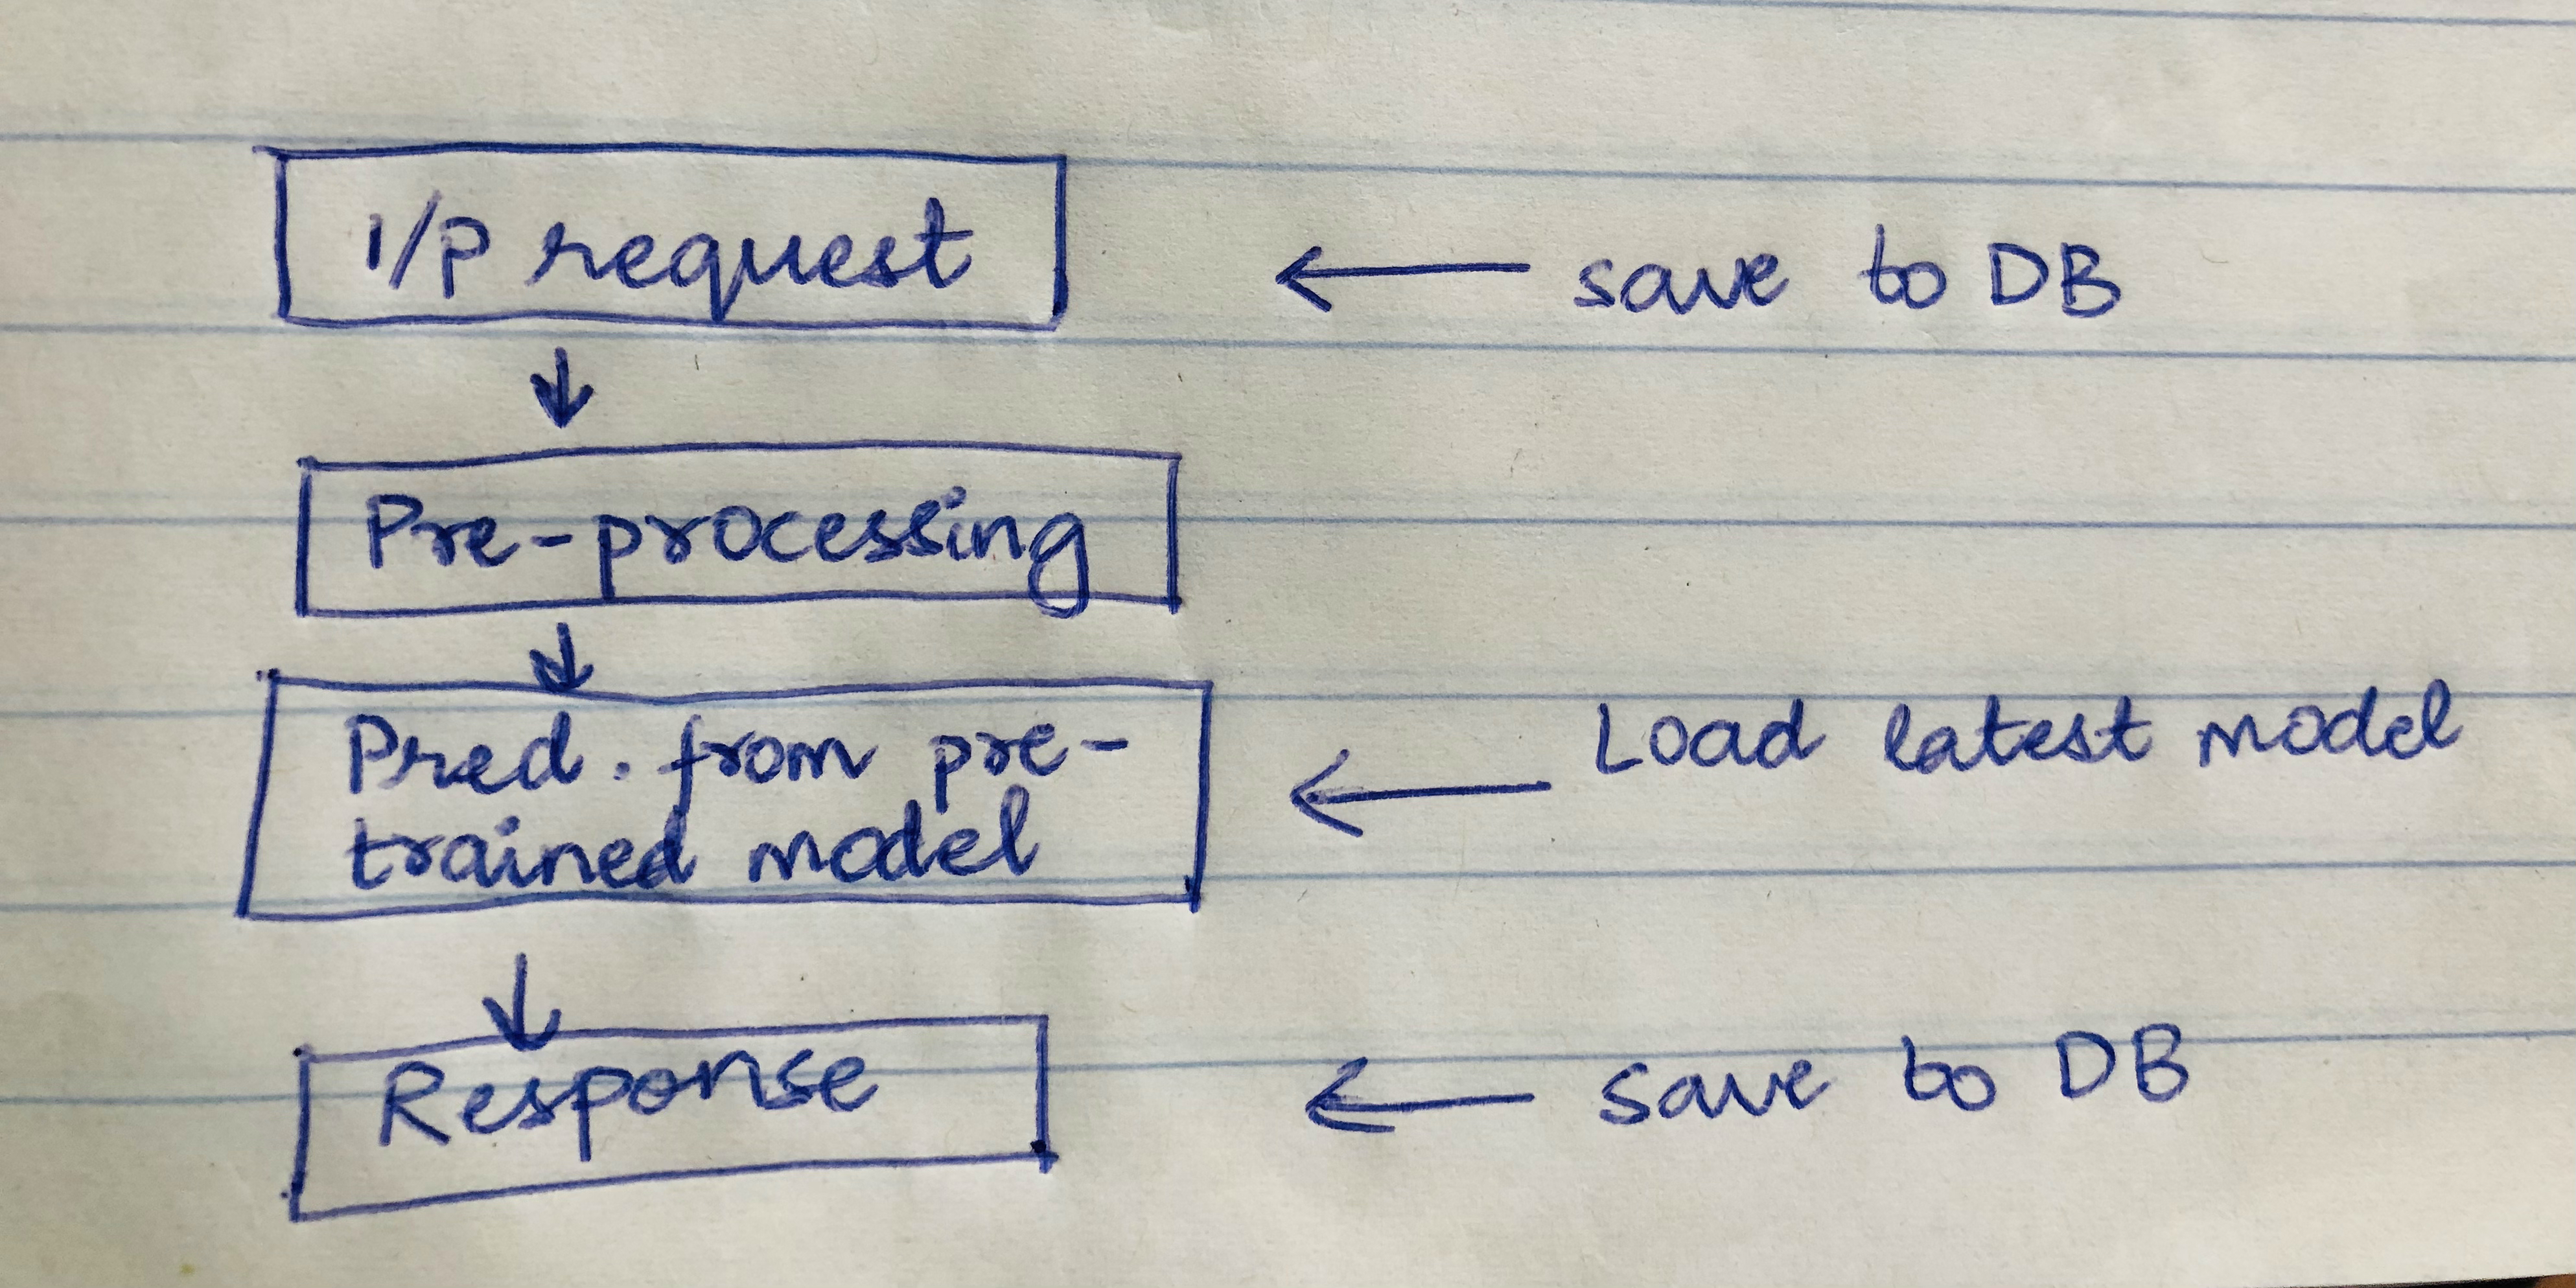 I/P request
← save to DB
↓
Pre-processing
↓
Pred. from pre-
trained model
← Load latest model
↓
Response
← save to DB